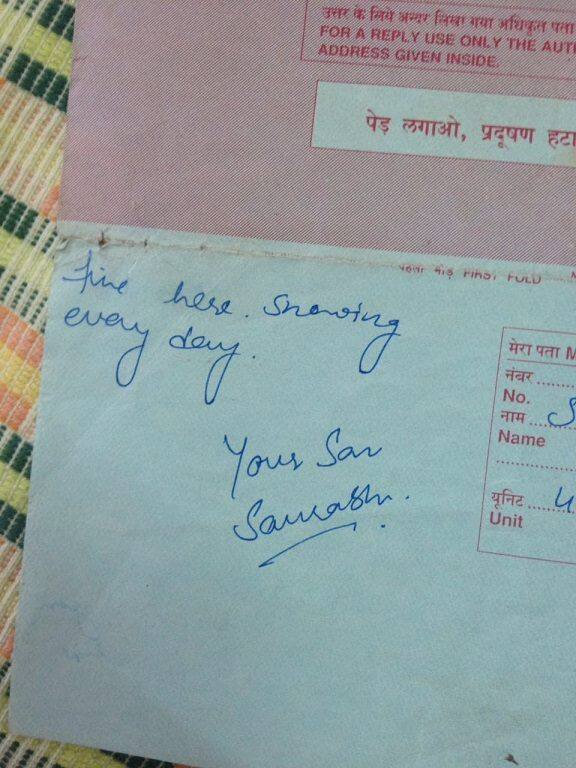 उत्तर के लिये अन्दर लिखा गया अधिकृत पता
FOR A REPLY USE ONLY THE
ADDRESS GIVEN INSIDE.
पेड़ लगाओ, प्रदूषण
पहला मोड़ FIRST FOLD
fine here. Snowing
every day.
Your Son
Saurabh.
मेरा पता
नंबर
No.
नाम
Name
यूनिट
Unit